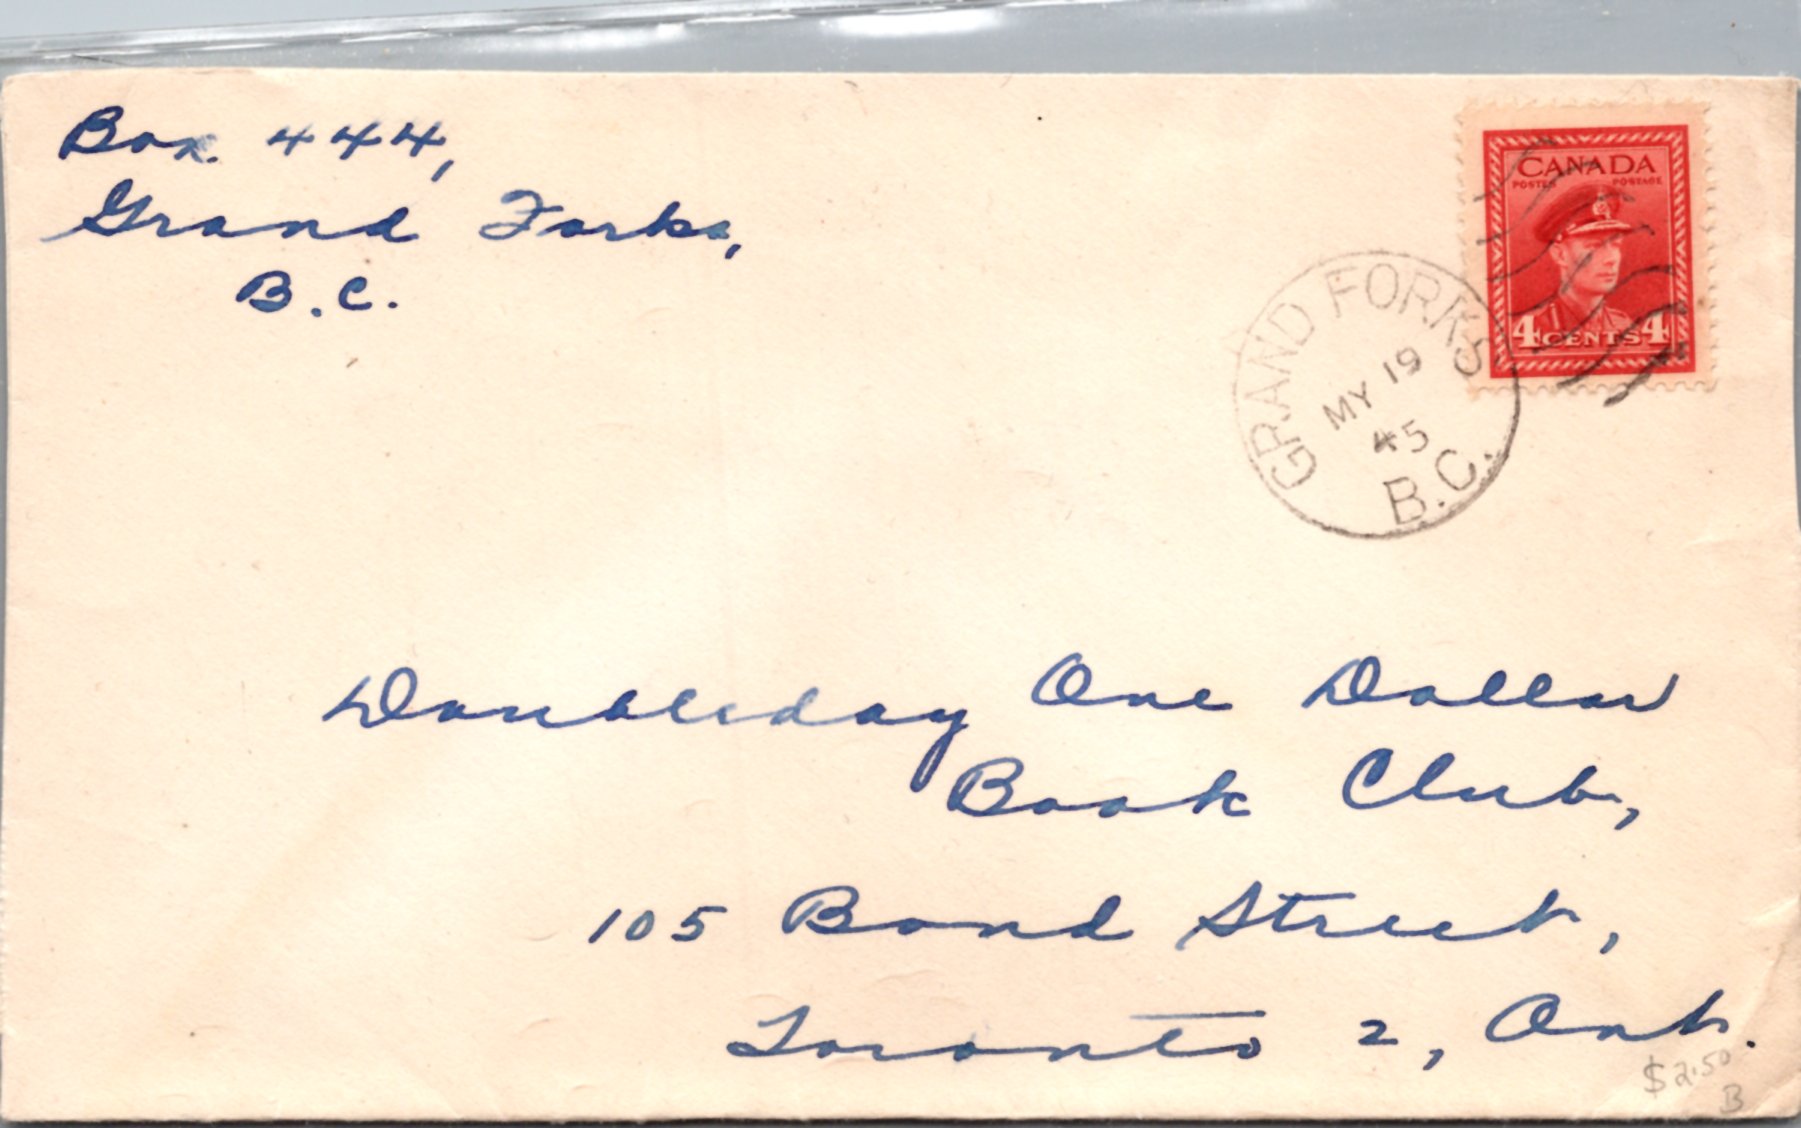 Box. 444,
Grand Forks,
B.C.
CANADA
POSTES POSTAGE
4 CENTS 4
GRAND FORKS
MY 19
45
B.C.
Doubleday One Dollar
Book Club,
105 Bond Street,
Toronto 2, Ont.
$2.50
B